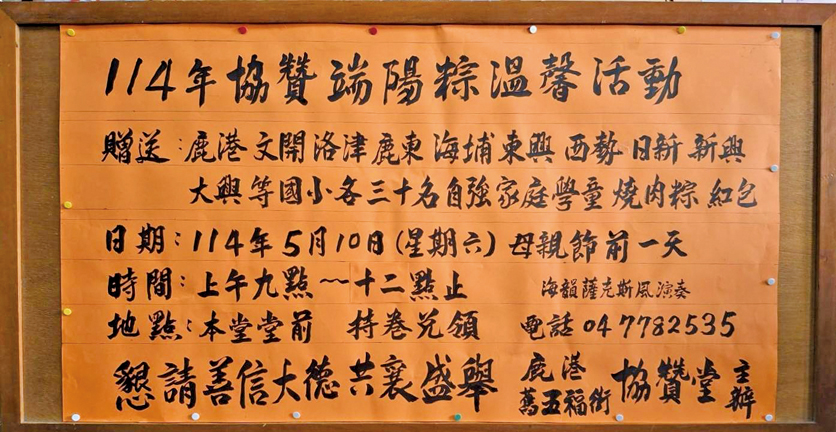 114年協贊端陽粽溫馨活動
贈送:鹿港 文開 洛津 鹿東 海埔 東興 西勢 日新 新興
大興等國小各三十名自強家庭學童 燒肉粽 紅包
日期:114年5月10日(星期六)母親節前一天
時間:上午九點~十二點止 海韻薩克斯風演奏
地點:本堂堂前 持卷兌領 電話 04 7782535
懇請善信大德共襄盛舉 鹿港 協贊堂 主辦
萬五福街